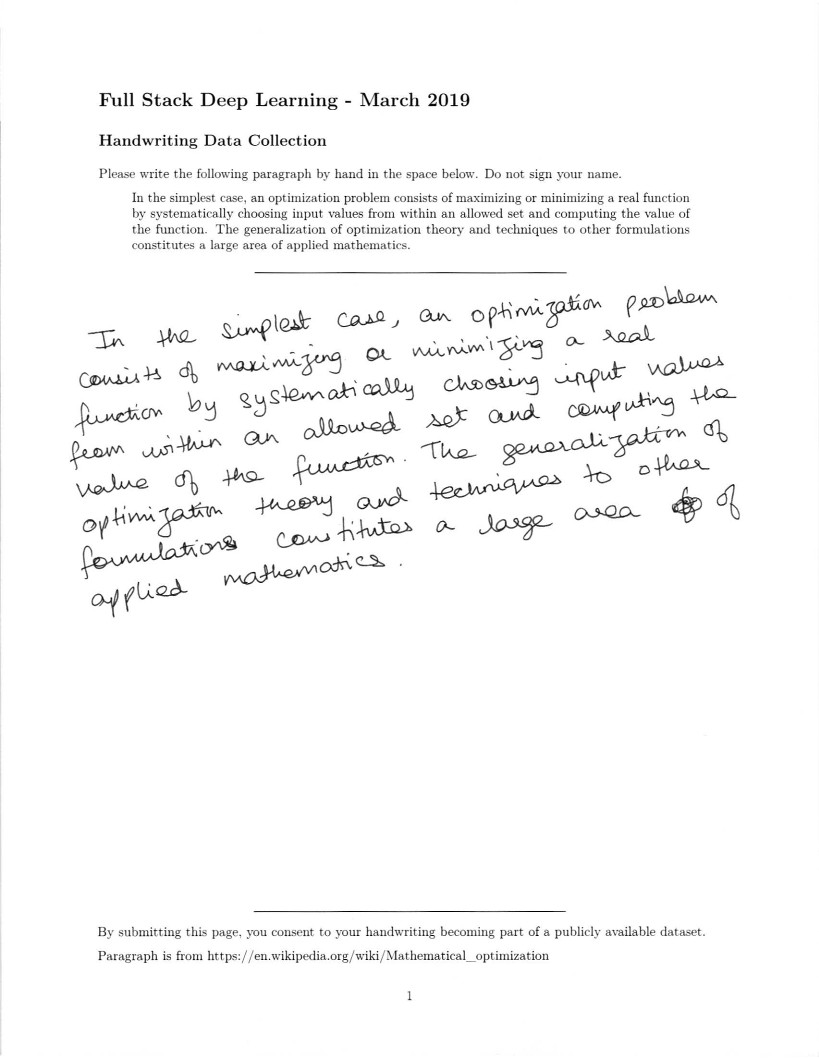 Full Stack Deep Learning - March 2019
Handwriting Data Collection
Please write the following paragraph by hand in the space below. Do not sign your name.
In the simplest case, an optimization problem consists of maximizing or minimizing a real function
by systematically choosing input values from within an allowed set and computing the value of
the function. The generalization of optimization theory and techniques to other formulations
constitutes a large area of applied mathematics.
In the simplest case, an optimization problem
consists of maximizing or minimizing a real
function by systematically choosing input values
from within an allowed set and computing the
value of the function. The generalization of
optimization theory and techniques to other
formulations constitutes a large area of
applied mathematics.
By submitting this page, you consent to your handwriting becoming part of a publicly available dataset.
Paragraph is from https://en.wikipedia.org/wiki/Mathematical_optimization
1